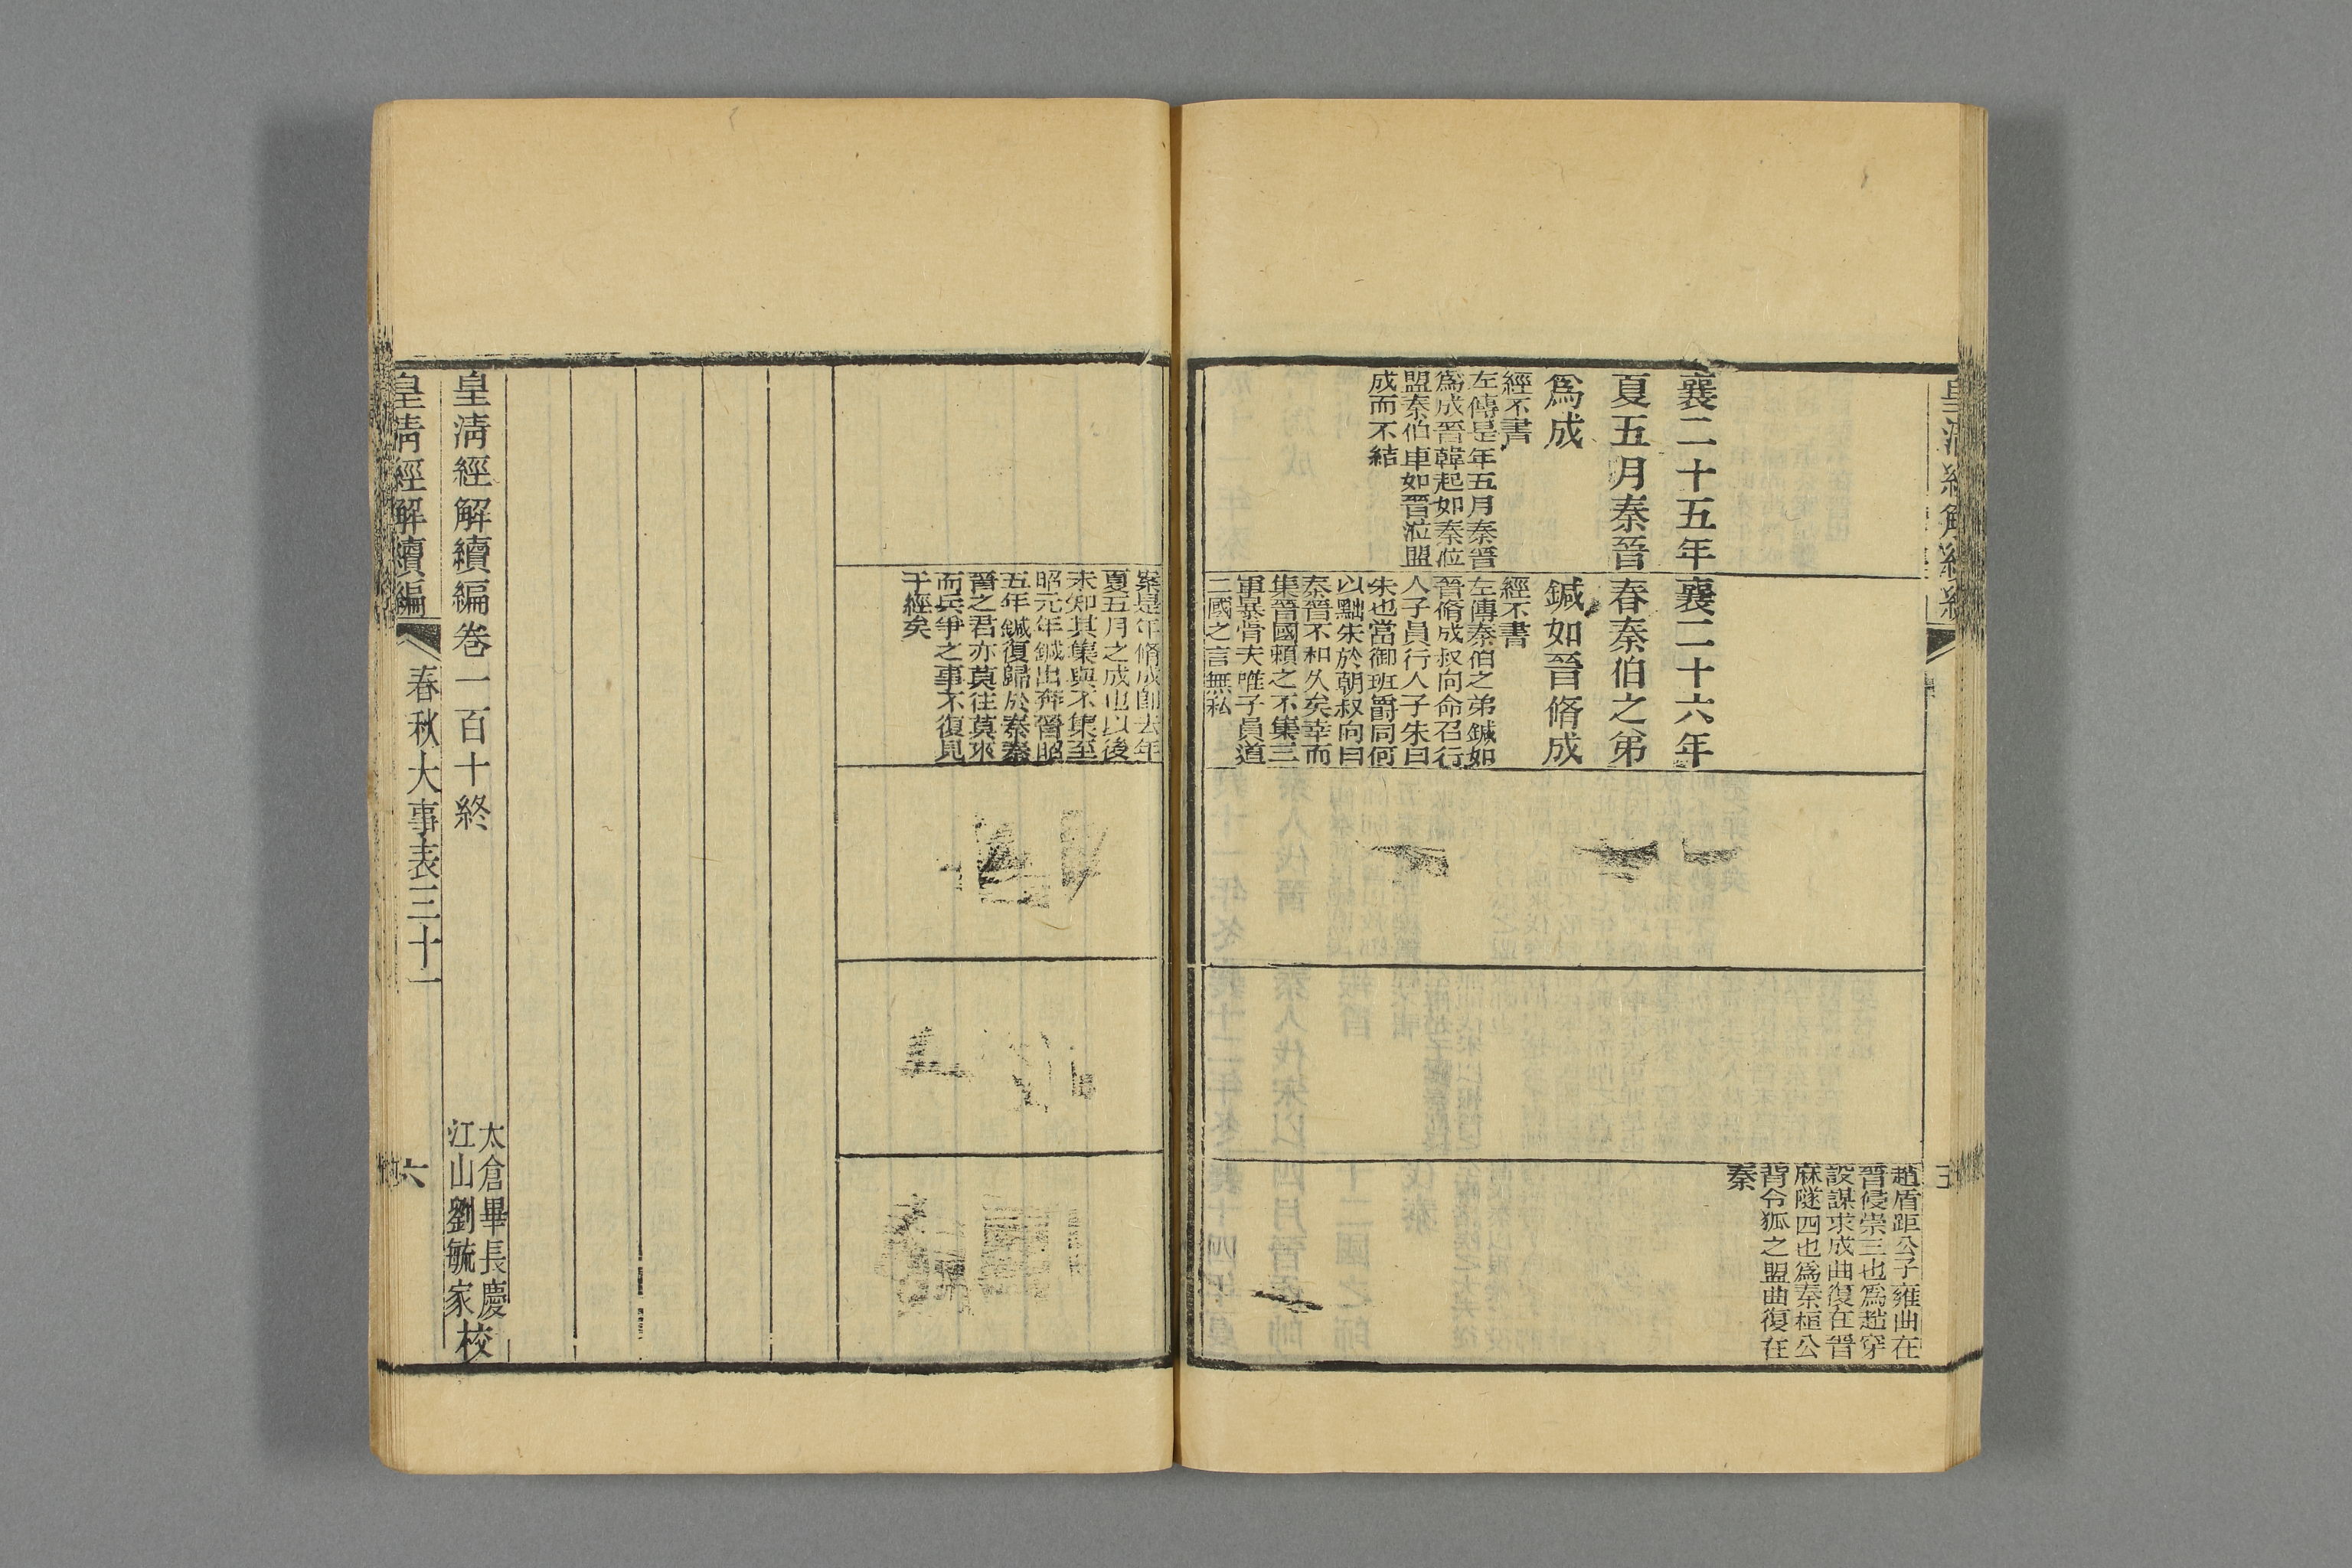 趙盾距公子雍曲在
晉侵崇三也爲趙穿
設謀求成曲復在晉
麻隧四也爲秦桓公
背令狐之盟曲復在
秦
襄二十五年
夏五月秦晉
爲成
經不書
左傳是年五月秦晉
爲成晉韓起如秦涖
盟秦伯車如晉涖盟
成而不結
襄二十六年
春秦伯之弟
鍼如晉脩成
經不書
左傳秦伯之弟鍼如
晉脩成叔向命召行
人子員行人子朱曰
朱也當御班爵同何
以黜朱於朝叔向曰
秦晉不和久矣幸而
集晉國賴之不集三
軍暴骨夫唯子員道
二國之言無私
案是年脩成卽去年
夏五月之成也以後
未知其集與不集至
昭元年鍼出奔晉昭
五年鍼復歸於秦秦
晉之君亦莫往莫來
而兵爭之事不復見
于經矣
皇淸經解續編卷一百十終
太倉畢長慶
江山劉毓家
校
皇淸經解續編
春秋大事表三十一
六